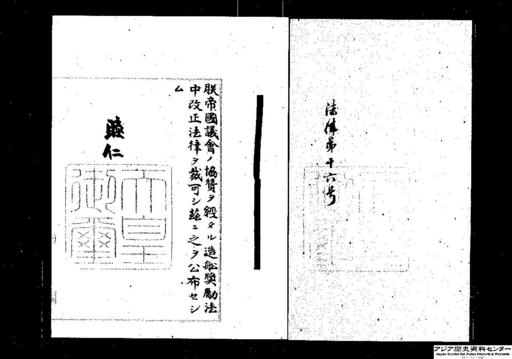 法律第十六号
朕帝國議會ノ協賛ヲ經タル造船奬勵法
中改正法律ヲ裁可シ茲ニ之ヲ公布セシ
ム
睦仁
天皇
御璽
アジア歴史資料センター
Japan Center for Asian Historical Records